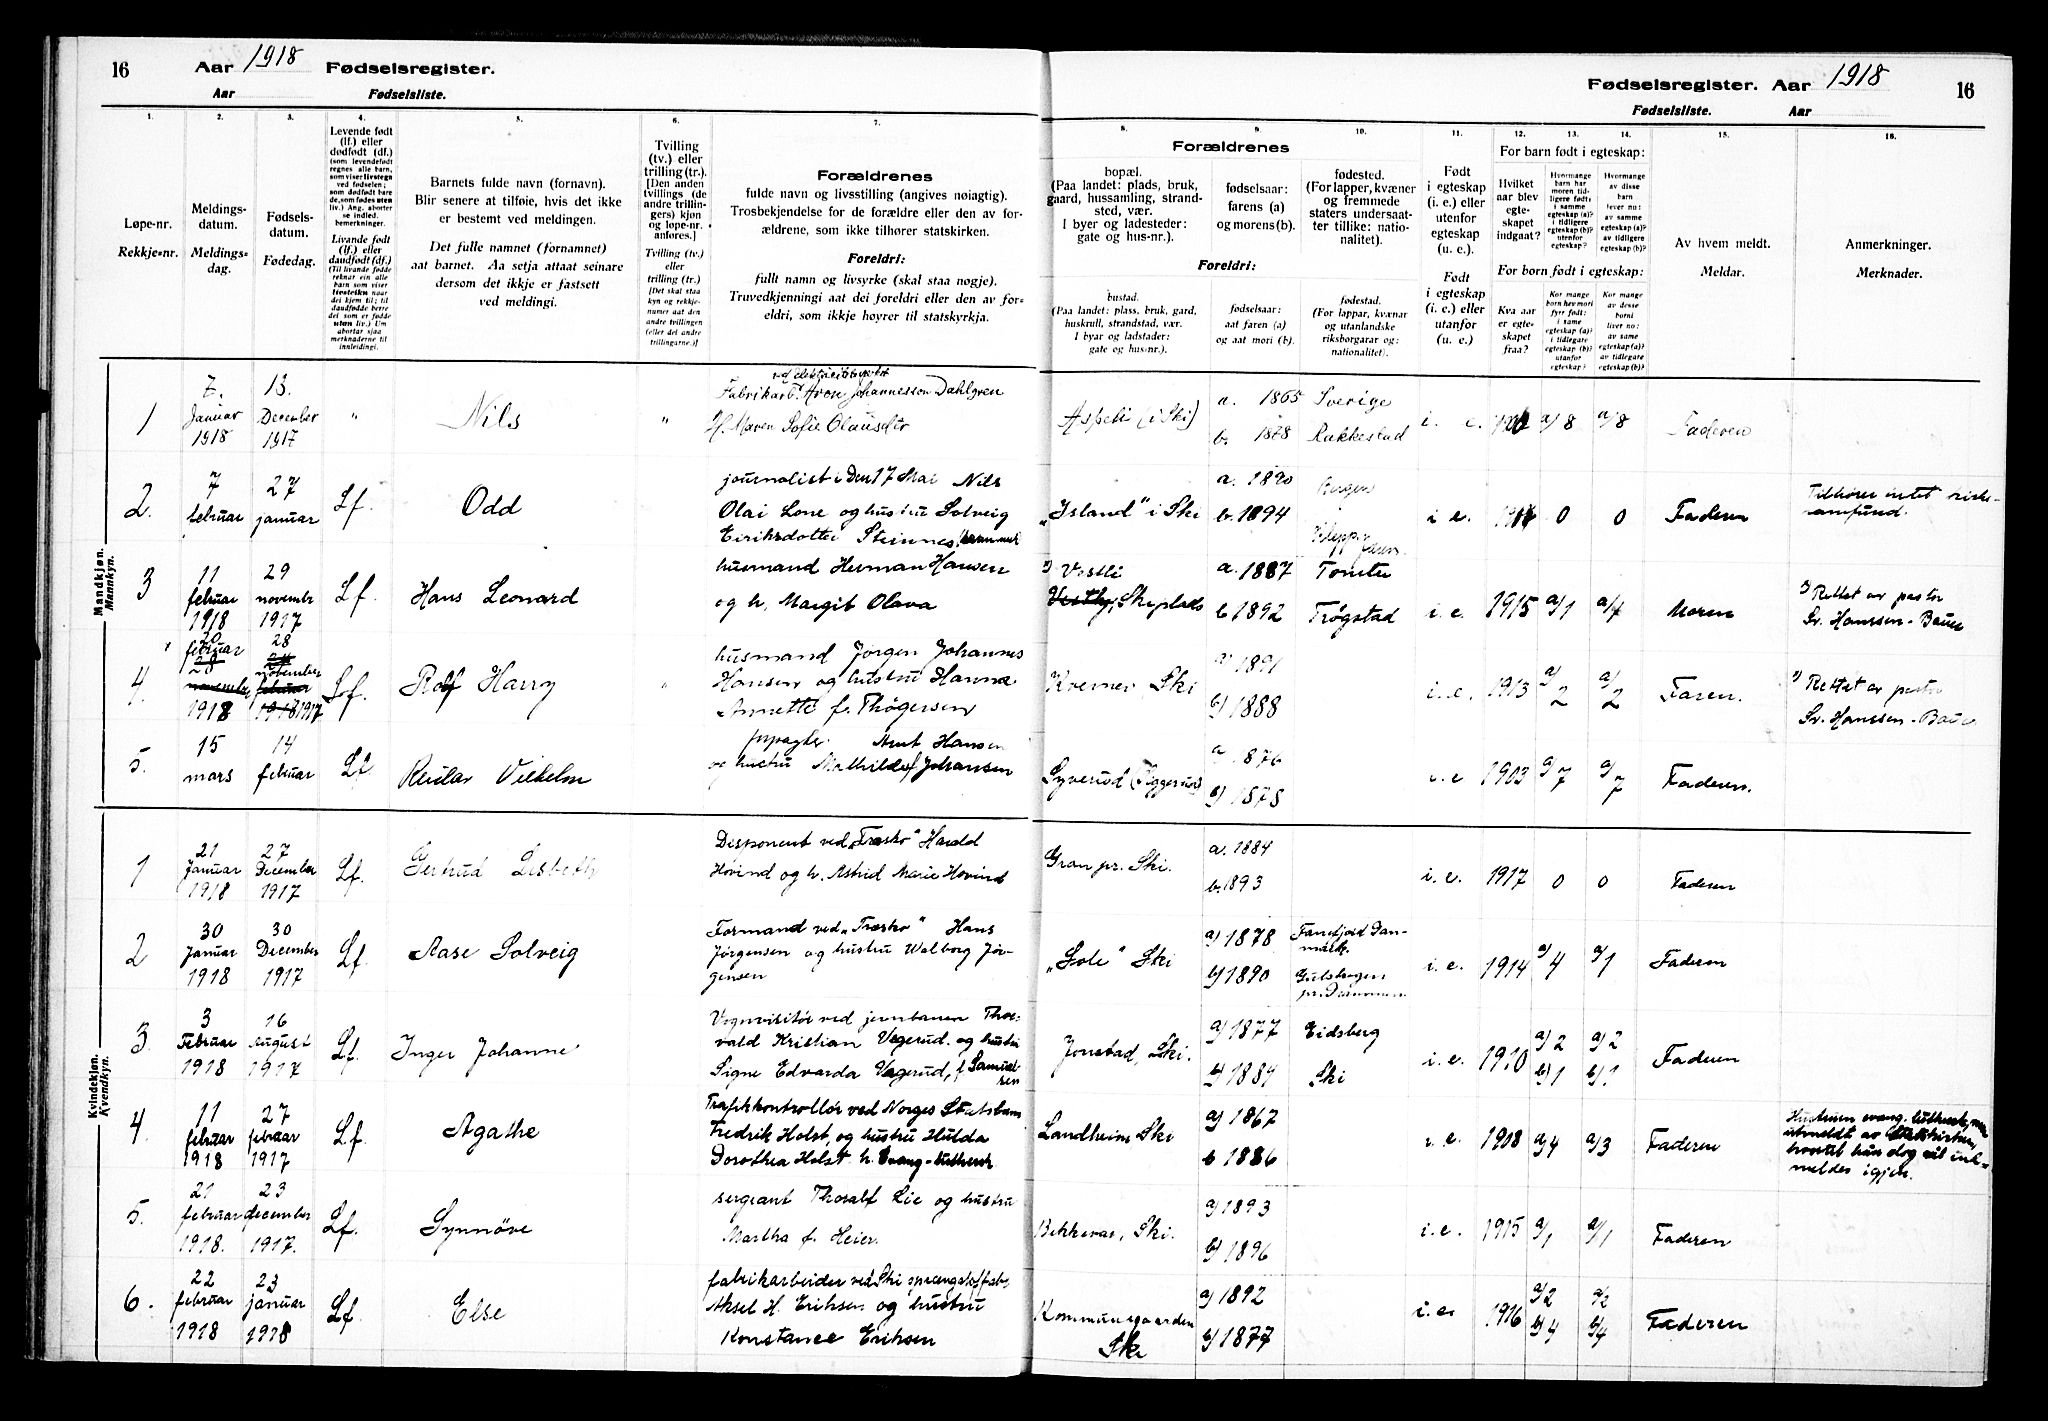 16 Aar 1918 Fødselsregister.
Aar Fødselsliste.
Fødselsregister. Aar 1918 16
Fødselsliste. Aar
1.
Løpe-nr.
Rekkje-nr.
2.
Meldings-
datum.
Meldings-
dag.
3.
Fødsels-
datum.
Fødedag.
4.
Levende født
(lf.) eller
dødfødt (df.)
(som levendefødt
regnes alle barn,
som viser livstegn
ved fødselen;
som dødfødt bare
de, som fødes uten
liv.) Ang. aborter
se indled.
bemerkninger.
Livande født
(lf.) eller
daudfødt (df.)
(Til livande fødde
reknar ein alle
born som viser
livsteikn naar
dei kjem til; til
daudfødde berre
dei som er fødde
utan liv.) Um
abortar sjaa
merknaderne til
innleidingi.
5.
Barnets fulde navn (fornavn).
Blir senere at tilføie, hvis det ikke
er bestemt ved meldingen.
Det fulle namnet (fornamnet)
aat barnet. Aa setja attaat seinare
dersom det ikkje er fastsett
ved meldingi.
6.
Tvilling
(tv.) eller
trilling (tr.).
[Den anden
tvillings (de
andre trillin-
gers) kjøn
og løpe-nr.
anføres.]
Tvilling (tv.)
eller
trilling (tr.)
[Det skal staa
kyn og rekkje-
numer aat den
andre tvillingen
(eller dei andre
trillingarne.)]
7.
Forældrenes
fulde navn og livsstilling (angives nøiagtig).
Trosbekjendelse for de forældre eller den av for-
ældrene, som ikke tilhører statskirken.
Foreldri:
fullt namn og livsyrke (skal staa nøgje).
Truvedkjenningi aat dei foreldri eller den av for-
eldri, som ikkje høyrer til statskyrkja.
Forældrenes
8.
bopæl.
(Paa landet: plads, bruk,
gaard, hussamling, strand-
sted, vær.
I byer og ladesteder:
gate og hus-nr.).
9.
fødselsaar:
farens (a)
og morens (b).
10.
fødested.
(For lapper, kvæner
og fremmede
staters undersaat-
ter tillike: natio-
nalitet).
Foreldri:
bustad.
(Paa landet: plass, bruk, gard,
huskrull, strandstad, vær.
I byar og ladstader:
gate og hus-nr.).
fødselsaar:
aat faren (a)
og aat mori (b).
fødestad.
(For lappar, kvænar
og utanlandske
riksborgarar og:
nationalitet).
11.
Født
i egteskap
(i. e.) eller
utenfor
egteskap
(u. e.)
Født
i egteskap
(i. e.) eller
utanfor
(u. e.)
12. 13. 14.
For barn født i egteskap:
Hvilket
aar blev
egte-
skapet
indgaat?
Hvormange
barn har
moren tid-
ligere født:
i samme
egteskap (a)?
i tidligere
egteskap (b)?
utenfor
egteskap?
Hvormange
av disse
barn
lever nu:
av samme
egteskap (a)?
av tidligere
egteskap (b)?
For born født i egteskap:
Kva aar
er egte-
skapet
fraa?
Kor mange
born hev mori
fyrr født:
i same
egteskap (a)?
i tidlegare
egteskap (b)?
utanfor
egteskap?
Kor mange
av disse
borni
liver no:
av same
egteskap (a)?
av tidlegare
egteskap (b)?
15.
Av hvem meldt.
Meldar.
16.
Anmerkninger.
Merknader.
Mandkjøn.
Mannkyn.
1 7. Januar 1918 13. December 1917 " Nils "
Fabrikarb. Aron Johannesson Dahlgren
H. Maren Sofie Olausdtr
Aspeli (i Ski) a. 1865 b. 1878 Sverige Rakkestad i. e. a/8 a/8 Faderen
2. 7 februar 27 januar Lf. Odd
journalist i Den 17 Mai Nils
Olai Lone og hustru Solveig
Eiriksdotter Steinnes
„Island" i Ski a. 1890 b. 1894 Bergen Klepp Jæren. i e. 0 0 Faderen
Tilhører intet kirke-
samfund.
3 11 februar 1918 29 novembr 1917 Lf. Hans Leonard
husmand Herman Hansen
og h. Margit Olava
Vestli
Vestby, Skiplads a. 1887 b 1892 Tomter Trøgstad i. e. 1915 a/1 Moren
Rettet av pastor
Sv. Hanssen-Bauer
4. 20 februar 28 novembr 1918 28 november februar 1918 1917 Lf. Rolf Harry "
husmand Jørgen Johannes
Hansen og hustru Hanna
Annette f. Thøgersen
Kverner, Ski a) 1891 b) 1888 i. e. 1913 a/2 a/2 Faren.
Rettet av pastor
Sv. Hanssen-Bauer
5. 15 mars 14 februar Lf Reidar Vilhelm
forpagter Arnt Hansen
og hustru Mathilde f. Johansen
Syverud (Siggerud) a. 1876 b) 1878 i. e 1903 a/7 a/7 Faderen.
Kvindekjøn.
Kvendkyn.
1 21 Januar 1918 27 December 1917 Lf. Gertrud Lisbeth
Disponent ved „Træsko" Harald
Hovind og h. Astrid Marie Hovind
Gran pr. Ski. a. 1884 b. 1893 i. e. 1917 0 0 Faderen
2 30 Januar 1918 30 December 1917 Lf. Aase Solveig
Formand ved „Træsko" Hans
Jørgensen og hustru Walborg Jør-
gensen
„Sole" Ski a) 1878 b) 1890 Fanefjord Dan-
mark. Gulskogen
pr. Drammen. i. e. 1914 a/4 a/1 Faderen
3. 3 Februar 1918 16 August 1917 Lf. Inger Johanne
Vognvisitør ved jernbanen Thor-
vald Kristian Vagerud. og hustru
Signe Edvarda Vagerud, f. Samuel-
sen
Jonstad, Ski. a) 1877 b) 1884 Eidsberg Ski i. e. 1910 a/2 b/1 a/2 b/1 Faderen
4. 11 februar 1918 27 februar 1917 Lf. Agathe
Trafikkontrollør ved Norges Statsbaner
Fredrik Holst, og hustru Hulda
Dorothea Holst h. Evang-luthersk
Landheim Ski a) 1867 b 1886 i. e. 1908 a/4 a/3 Faderen
Hustruen evang. luthersk, men
utmeldt av Statskirken,
hvortil hun dog vil ind-
meldes igjen.
5. 21 februar 1918. 23 december 1917. Lf. Synnöve
sergeant Thoralf Lie og hustru
Martha f. Heier.
Bekkevar, Ski. a) 1893 b) 1896 i. e. 1915 a/1 a/1 Faderen
6. 22 februar 1918 23 januar 1918 Lf. Else
fabrikarbeider ved Ski sprængstoffabr.
Aksel H. Eriksen og hustru
Konstance Eriksen
Kommunegaarden
Ski a) 1892 b) 1877 i. e. 1916 a/2 b/4 a/2 b/4 Faderen